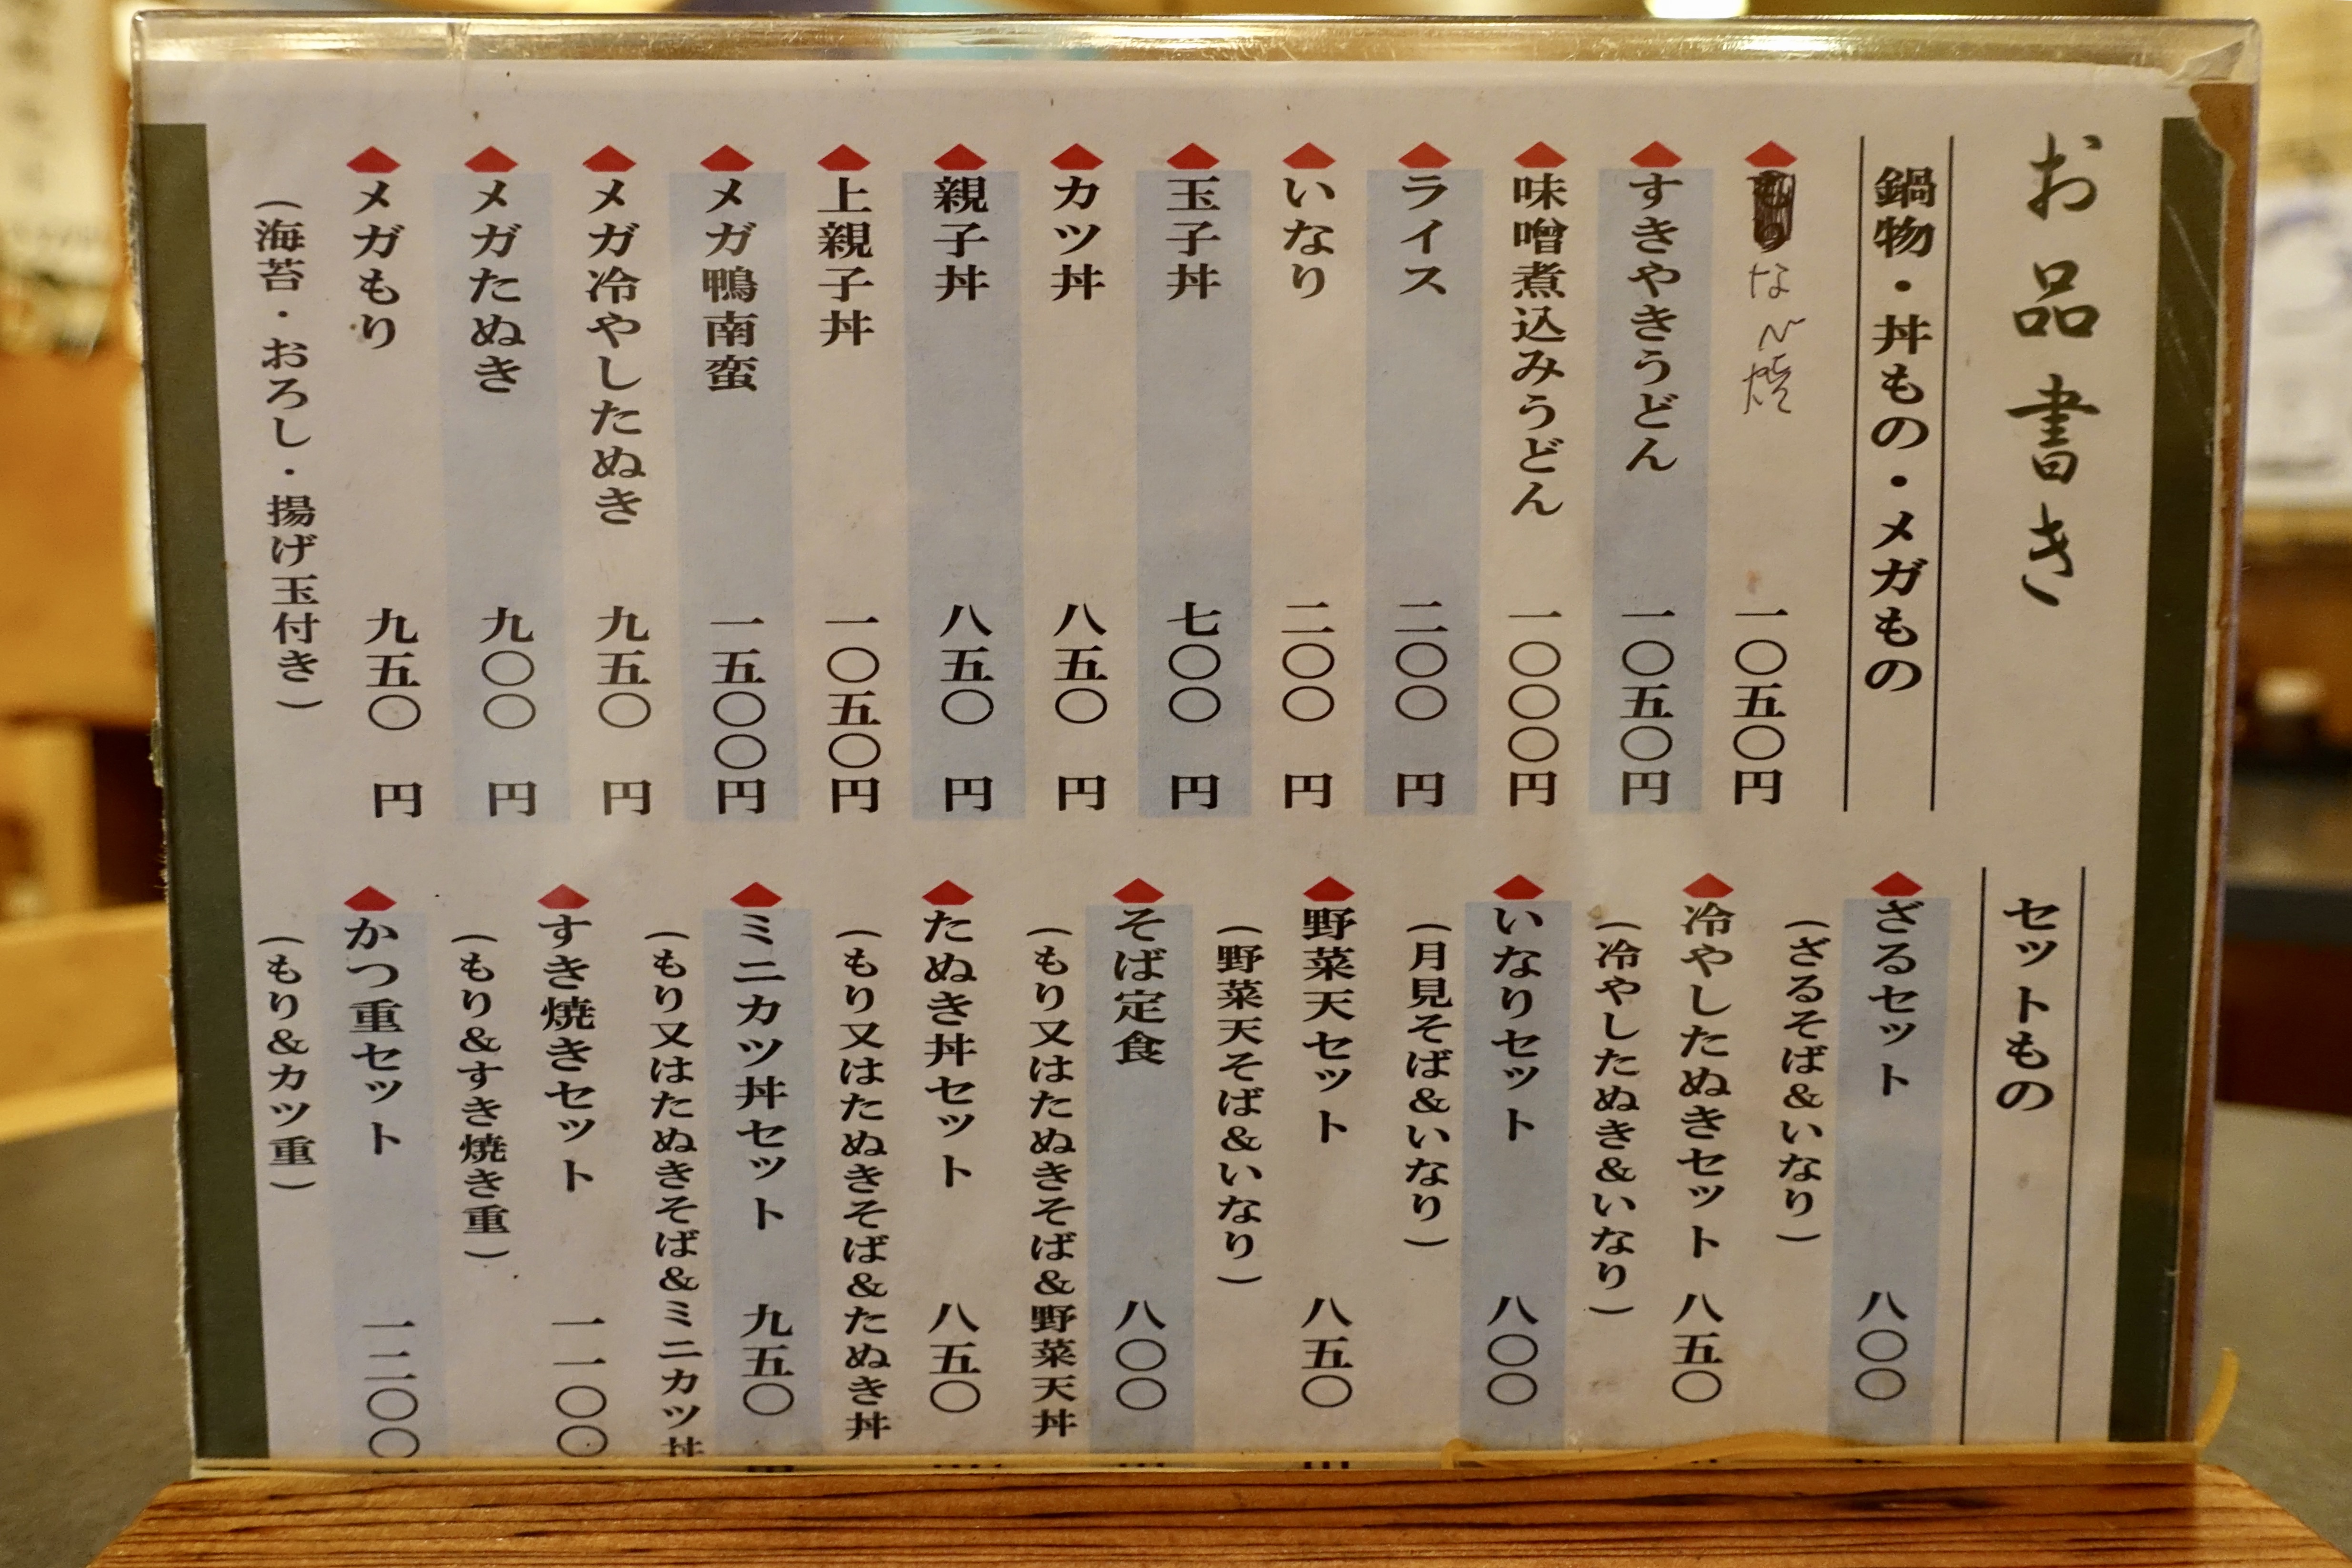 お品書き
鍋物・丼もの・メガもの
な 焼 一〇五〇円
すきやきうどん 一〇五〇円
味噌煮込みうどん 一〇〇〇円
ライス 二〇〇円
いなり 二〇〇円
玉子丼 七〇〇円
カツ丼 八五〇円
親子丼 八五〇円
上親子丼 一〇五〇円
メガ鴨南蛮 一五〇〇円
メガ冷やしたぬき 九五〇円
メガたぬき 九〇〇円
メガもり 九五〇円
(海苔・おろし・揚げ玉付き)
セットもの
ざるセット 八〇〇
(ざるそば&いなり)
冷やしたぬきセット 八五〇
(冷やしたぬき&いなり)
いなりセット 八〇〇
(月見そば&いなり)
野菜天セット 八五〇
(野菜天そば&いなり)
そば定食 八〇〇
(もり又はたぬきそば&野菜天丼
たぬき丼セット 八五〇
(もり又はたぬきそば&たぬき丼
ミニカツ丼セット 九五〇
(もり又はたぬきそば&ミニカツ丼
すき焼きセット 一一〇〇
(もり&すき焼き重)
かつ重セット 一二〇〇
(もり&カツ重)